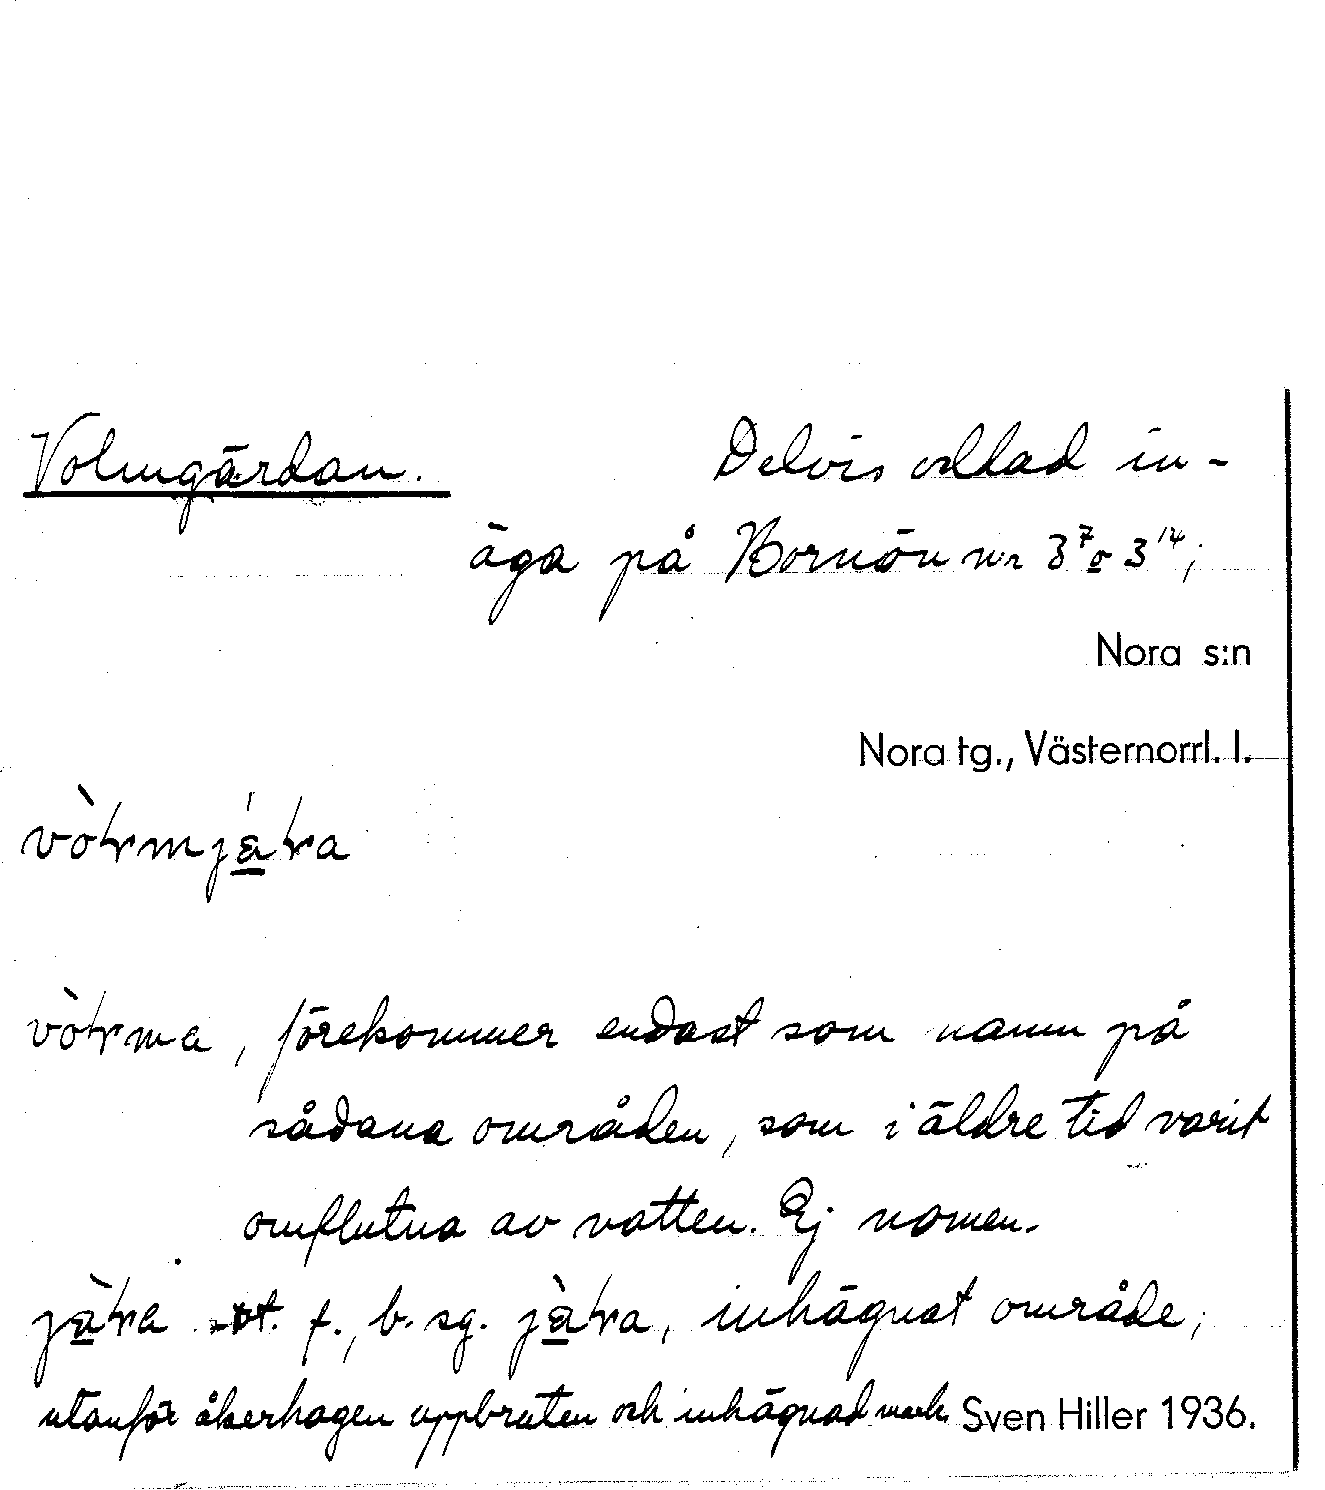 Volmgärdan. Delvis odlad in-
äga på Bornön nr 3⁷ o 3¹⁴;
Nora s:n
Nora tg., Västernorrl. l.
, förekommer endast som namn på
sådana områden, som i äldre tid varit
omflutna av vatten. Ej nomen.
f., b. sg. , inhägnat område;
utanför åkerhagen uppbruten och inhägnad mark. Sven Hiller 1936.